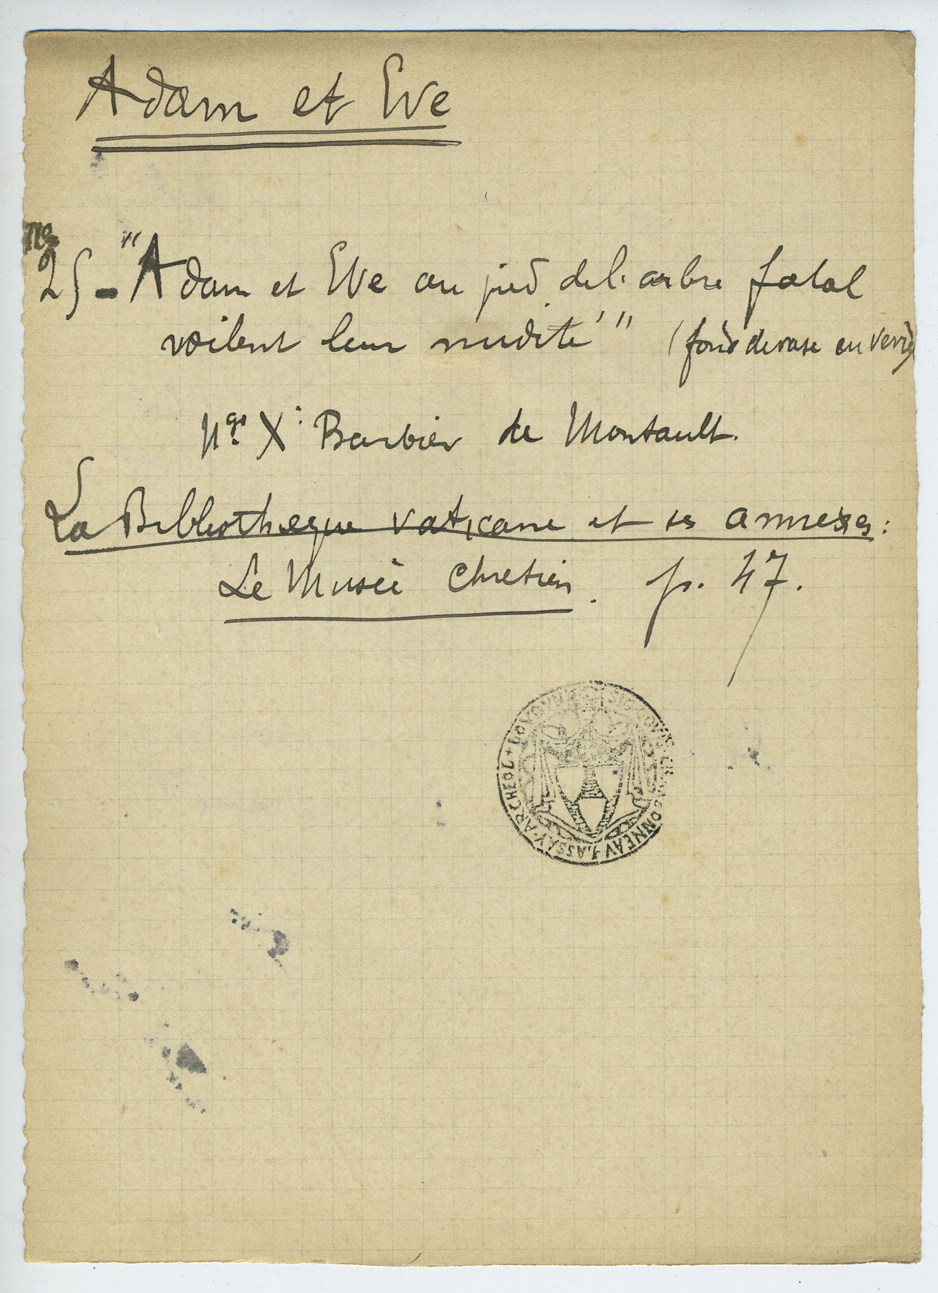 Adam et Eve
nº
25 - "Adam et Eve au pied de l'arbre fatal
voilent leur nudité" (fond de vase en verre)
Mgr X. Barbier de Montault.
La Bibliothèque vaticane et ses annexes :
Le Musée Chrétien. p. 47.
ARCHEOL